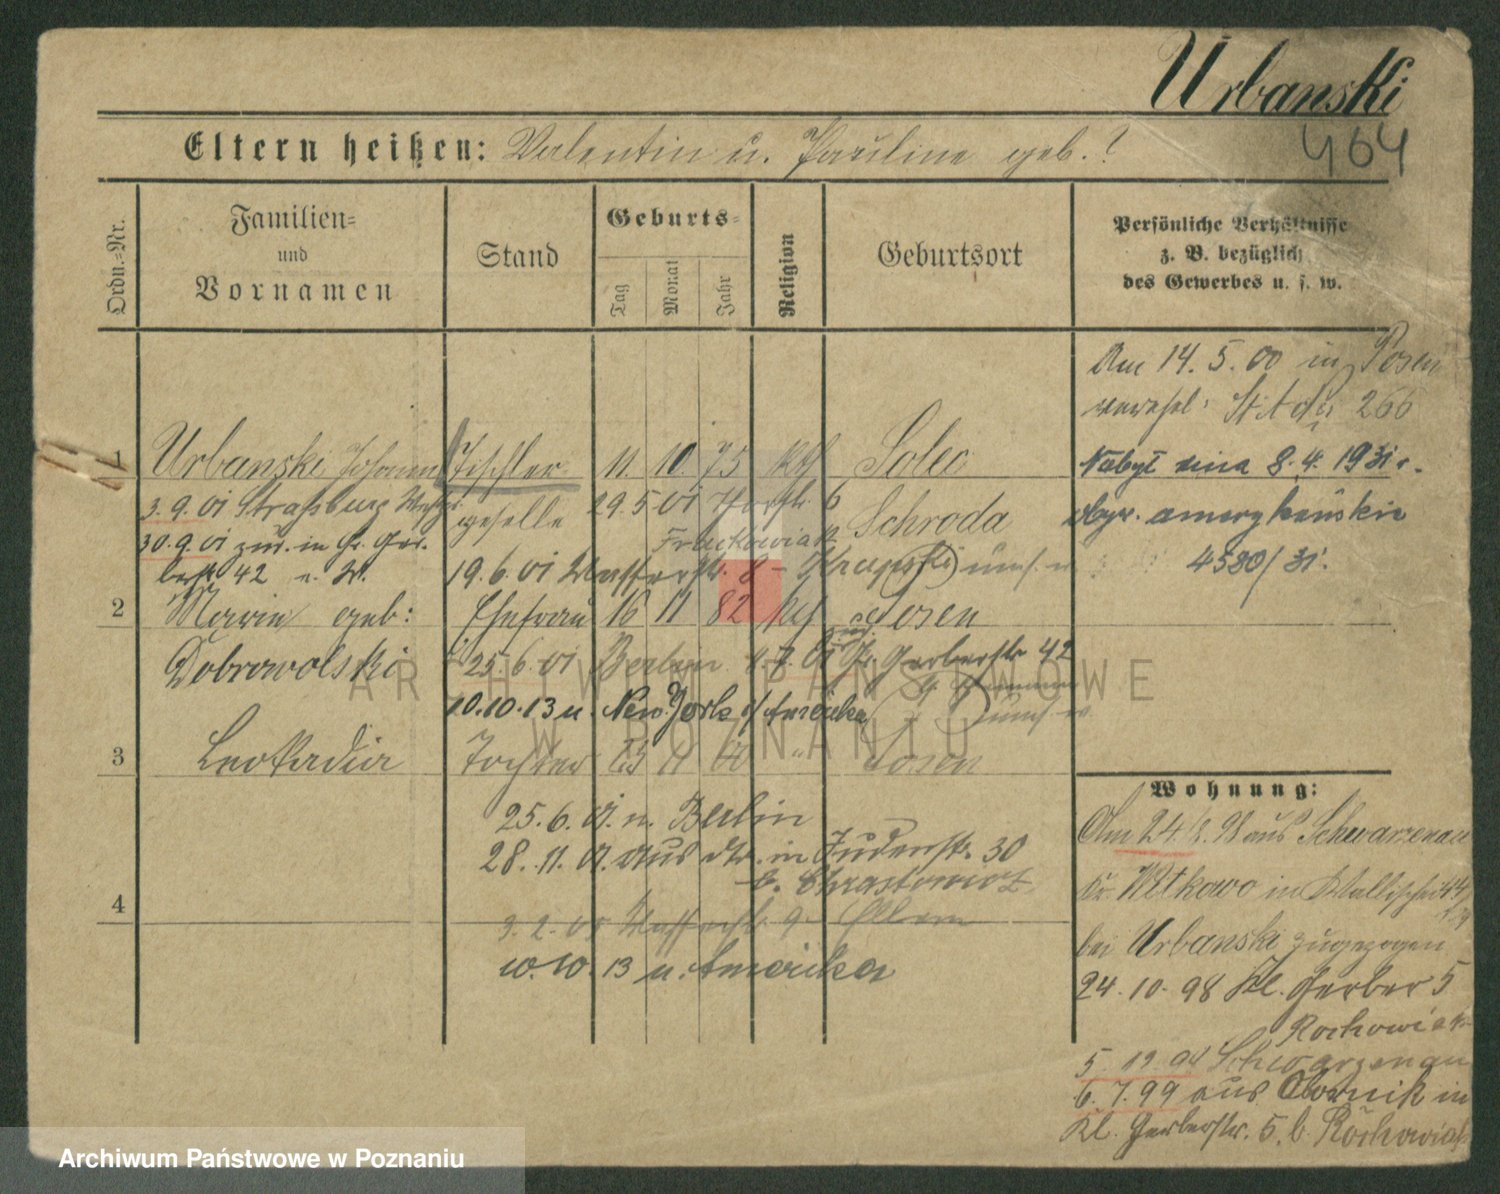 Urbanski
464
Eltern heißen: Valentin u. Pauline geb. ?
Ordn.-Nr.
Familien-
und
Vornamen
Stand
Geburts-
Tag
Monat
Jahr
Religion
Geburtsort
Persönliche Verhältnisse
z. B. bezüglich
des Gewerbes u. s. w.
Am 14. 5. 00 in Posen
verehel: St. A. 266
1 Urbanski Johann Tischler 11. 10. 75 Solec
geselle Schroda
Nabył dnia 8. 4. 1931 r.
amerykańskie
4580/31.
3.9.01 Straßburg
29.5.01 6
30.9.01 zur. in Gr. Ger-
berstr 42 u. W.
Frackowiak
19.6.01 Wasserstr. 8
2 Marie geb: Ehefrau 16 11 82 Posen
Dobrowolski
25.6.01 Berlin 4.7.01 Gr. Gerberstr 42
10.10.13 n. New-York i/Amerika
3 Leokadia Tochter 11 00 " Posen
25.6.01. n. Berlin
28.11.01. aus in Judenstr. 30
b. Chrastowicz
4
3.2.05 Wasserstr. 9. Eltern
10.10.13 n. Amerika
Wohnung:
Am 24/8. 98 aus Schwarzenau
Kr. Witkowo in Wallischei 44
bei Urbanski zugezogen
24.10.98 Kl. Gerber 5
Rochowiak
5. 12. Schwarzenau
6.7.99 aus Obornik in
Kl. Gerberstr. 5. b. Rochowiak
ARCHIWUM PAŃSTWOWE
W POZNANIU
Archiwum Państwowe w Poznaniu